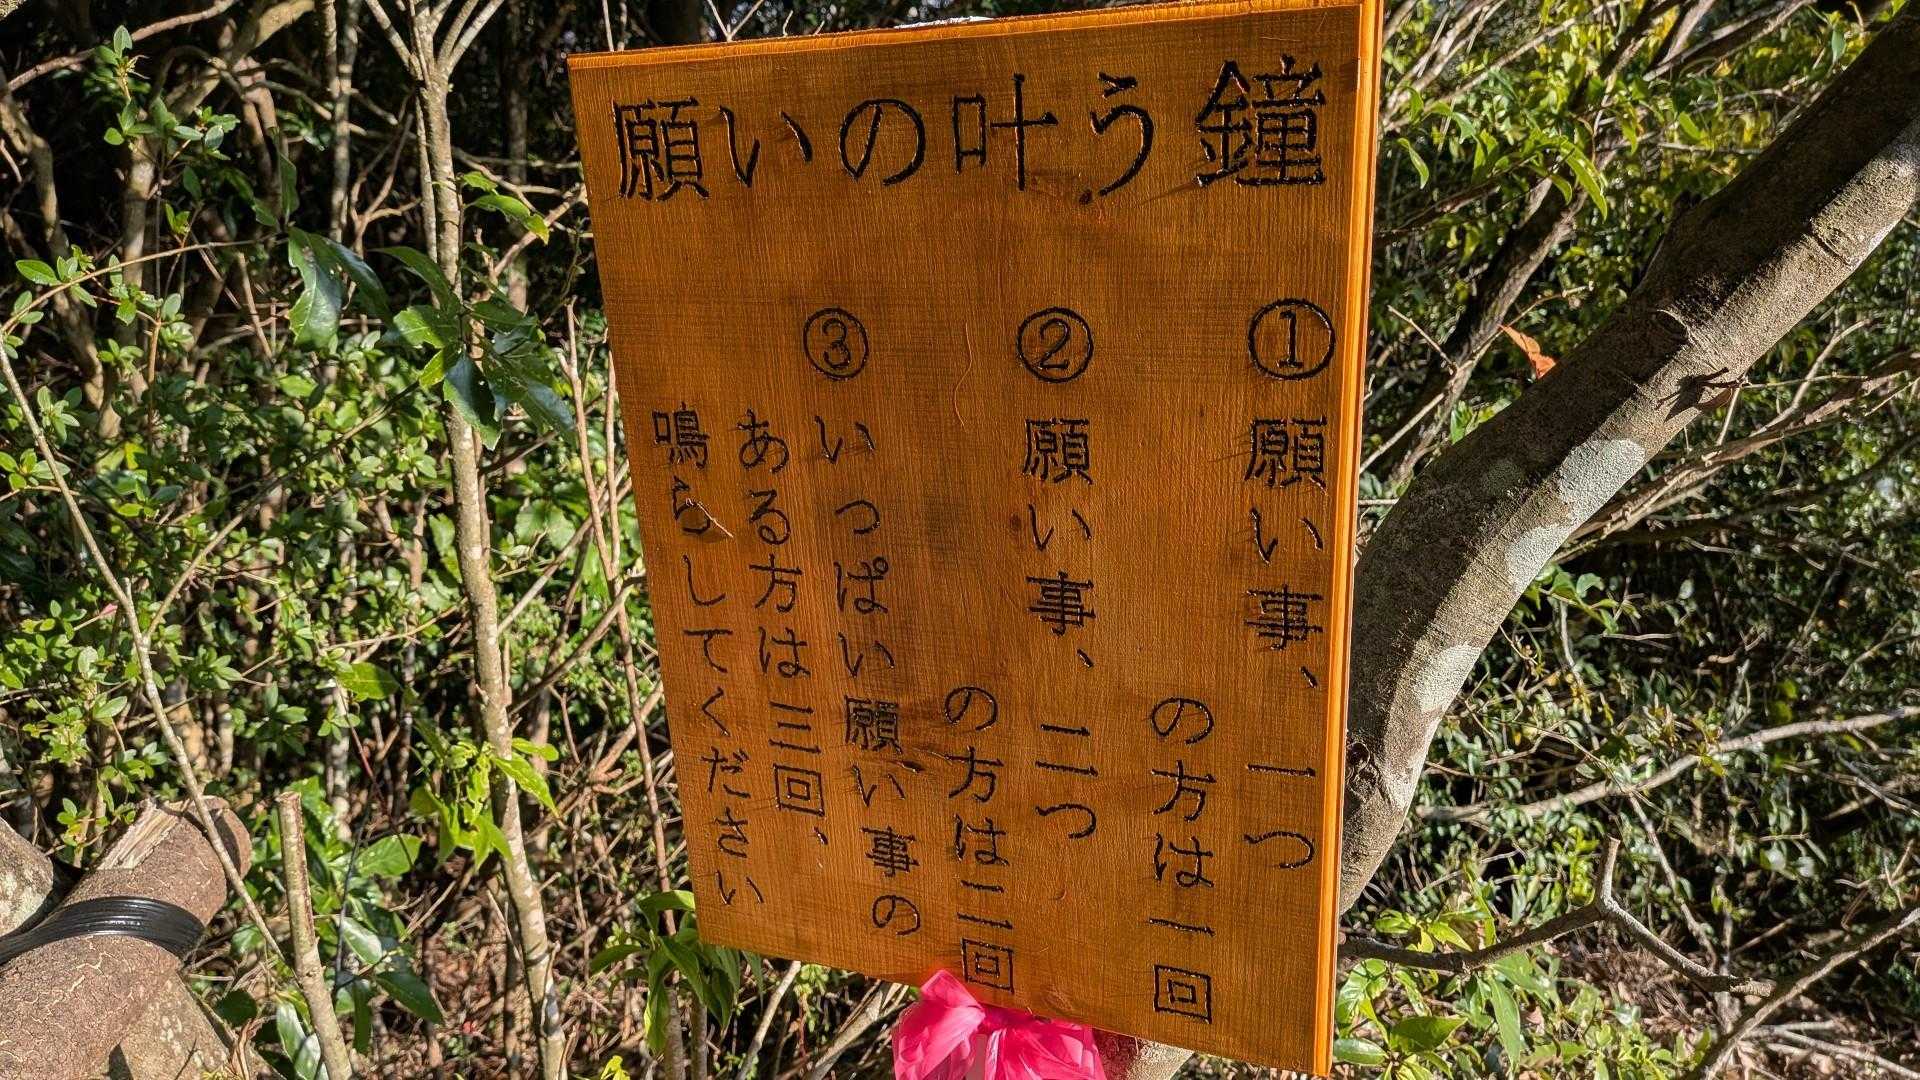 願いの叶う鐘
①願い事、一つ
の方は一回
②願い事、二つ
の方は二回
③いっぱい願い事の
ある方は三回、
鳴らしてください